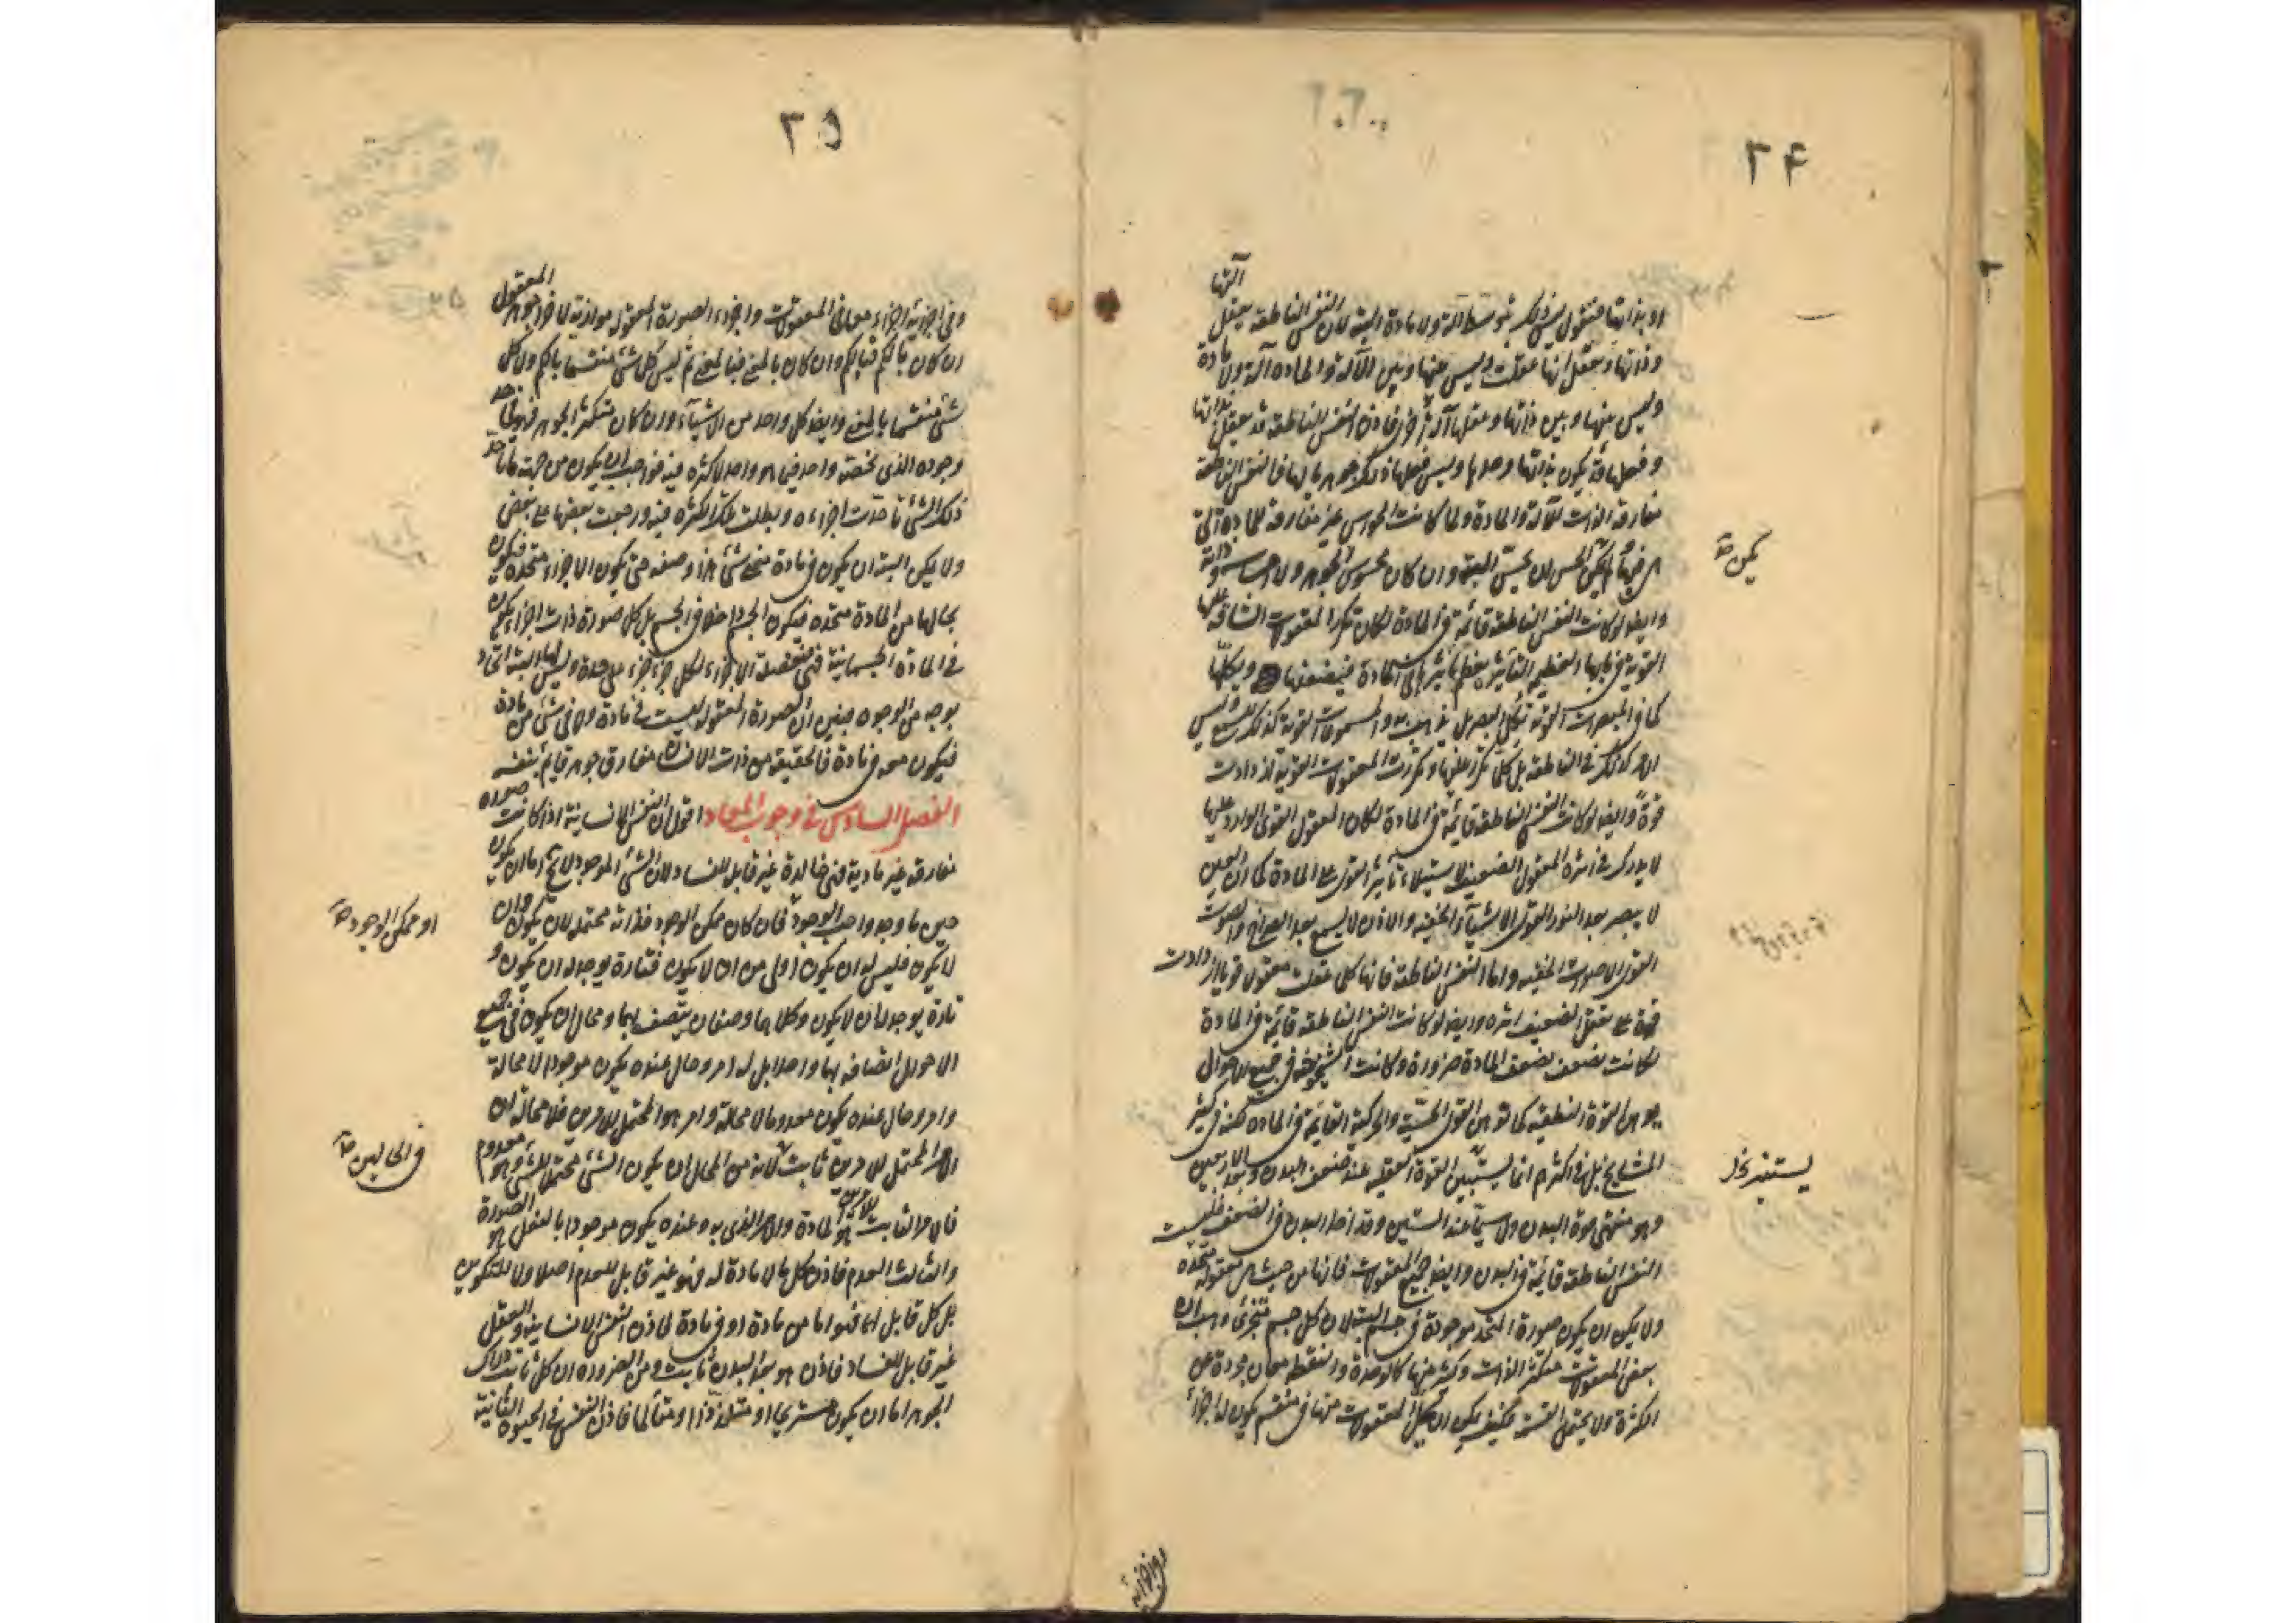 ٢٤
او بذاتها فنقول ليس ذلك بتوسط آلة ولا مادة البتة لان النفس الناطقة يعقل آلتها
وذاتها ويعقل انها عقلت وليس بينها وبين الآلة والمادة آلة ولا مادة
وليس بينها وبين ذاتها وعقلها آلة اخرى فاذن النفس الناطقة قد يعقل بذاتها
وفعلها قد يكون بذاتها وحدها وليس فعلها ذلك جوهر بالها فالنفس الناطقة
مفارقة الذات للآلة والمادة ولما كانت الحواس غير مفارقة للمادة التي
هي فيها لم يكن الحس ان يحس البتة وان كان محسوس الجوهر ولا احساسه ذاته
يمكن
وايضا لو كانت النفس الناطقة قائمة في المادة لكان تكرر المعقولات الشاقة عليها
القوية في بابها العظيم التأثير يعظم تأثيرها في المادة فيضعفها ويكلّها
كما في المبصرات القوية تكل البصر بل يذهب به والمسموعات القوية كذلك للسمع وليس
الامر كذلك في الناطقة بل كلما تكرر عليها وتكررت المعقولات القوية ازدادت
قوة وايضا لو كانت النفس الناطقة قائمة في المادة لكان المعقول القوى الوارد عليها
لا يدرك في اثره المعقول الضعيف لاستيلاء تأثير القوى على المادة كما ان العين
لا يبصر بعد النور القوى الاشياء الخفية والاذن لا يسمع بعد الصراخ والصوت
القوى الاصوات الخفية واما النفس الناطقة فانها كلما عقلت معقولا قويا ازدادت
قوة على تعقل الضعيف اثره وايضا لو كانت النفس الناطقة قائمة في المادة
لكانت تضعف بضعف المادة ضرورة وكانت الشيخوخة في جميع الاحوال
يوهن القوة النطقية كما توهن القوى الحسية والحركية القائمة في المادة لكنه في كثير
المشايخ بل في اكثرهم انما يستبين القوة العقلية عند ضعف البدن وبعد الاربعين
وهو منتهى قوة البدن ولا سيما عند الستين وقد اخذ البدن في الضعف فليست
النفس الناطقة قائمة في البدن وايضا جميع المعقولات فانها من حيث هي معقولة متحدة
ولا يمكن ان يكون صورة المتحد موجودة في جسم البتة لان كل جسم متجزئ وهب ان
بعض المعقولات متكثر الذات وكثير منها كالوحدة والنقطة معان مجردة عن
الكثرة ولا يحتمل القسمة فكيف يمكن ان يحل المعقولات منها في منقسم يكون له اجزاء
٢٥
وفي اجزائه اجزاء معاني المعقولات واجزاء الصورة المعقولة موازية لاجزاء جوهر المعقول
ان كان بالكم فبالكم وان كان بالمعنى فبالمعنى ثم ليس كل شئ منقسما بالكم ولا كل
شئ منقسما بالمعنى وايضا كل واحد من الاشياء وان كان متكثر الجوهر فهو في حد
وجوده الذي يخصه واحد فيما هو واحد لا كثرة فيه فواجب ان يكون من جهة ما
ذلك الشئ تأحدت اجزاءه وبطلت تلك الكثرة فيه ورجعت بعضها على بعض
ولا يمكن البتة ان يكون في مادة متحد شئ هذا وصفه حتى يكون الاجزاء متحدة فيكون
بحالها من المادة متحدة فيكون الجسم داخلا في الجسم بل كل صورة ذات اجزاء يكون
في المادة الجسمانية فهي منفصلة الاجزاء لكل جزء جزء على حدة وليس لها البتة اتحاد
بوجه من الوجوه فتبين ان الصورة المعقولة ليست في مادة ولا في شئ من مادة
فيكون معه في مادة فالحقيقة من ذات الانسان مفارق جوهر قايم بنفسه
الفصل السادس في وجوب المعاد اقول ان النفس الانسانية اذا كانت صورة
مفارقة غير مادية فهي خالدة غير قابل للفساد لان الشئ الموجود لا يخ اما ان يكون
حين ما وجد واجب الوجود فان كان ممكن الوجود فذاته محتمل لان يكون وان
او ممكن الوجود
لا يكون فليس له ان يكون اولى من ان لا يكون فتارة يوجد له ان يكون و
تارة يوجد له ان لا يكون وكلاهما وصفان يتصف بهما ومحال ان يكون في جميع
الاحوال اتصافه بهما واحدا بل له امر وحال عنده يكون موجودا لا محالة
وامر وحال عنده يكون معدوما لا محالة وامر هو المحتمل للامرين فلا محالة ان
الامر المحتمل للامرين ثابت لانه من المحال ان يكون الشئ محتملا للشئ وهو معدوم
في الحالين
فالامر الثابت للامرين هو المادة والامر الذي به وعنده يكون موجودا بالفعل هو الصورة
والثالث العدم فاذن كل ما لا مادة له فهو غير قابل للعدم اصلا ولا للتكوين
بل كل قابل لهما فهو اما من مادة او في مادة فاذن النفس الانسانية والعقل
غير قابل للفساد فاذن هو بعد البدن ثابت ومن الضرورة ان كل ثابت دراك
الجوهر اما ان يكون مستريحا او متلذذا او متألما فاذن النفس في الحيوة الثانية